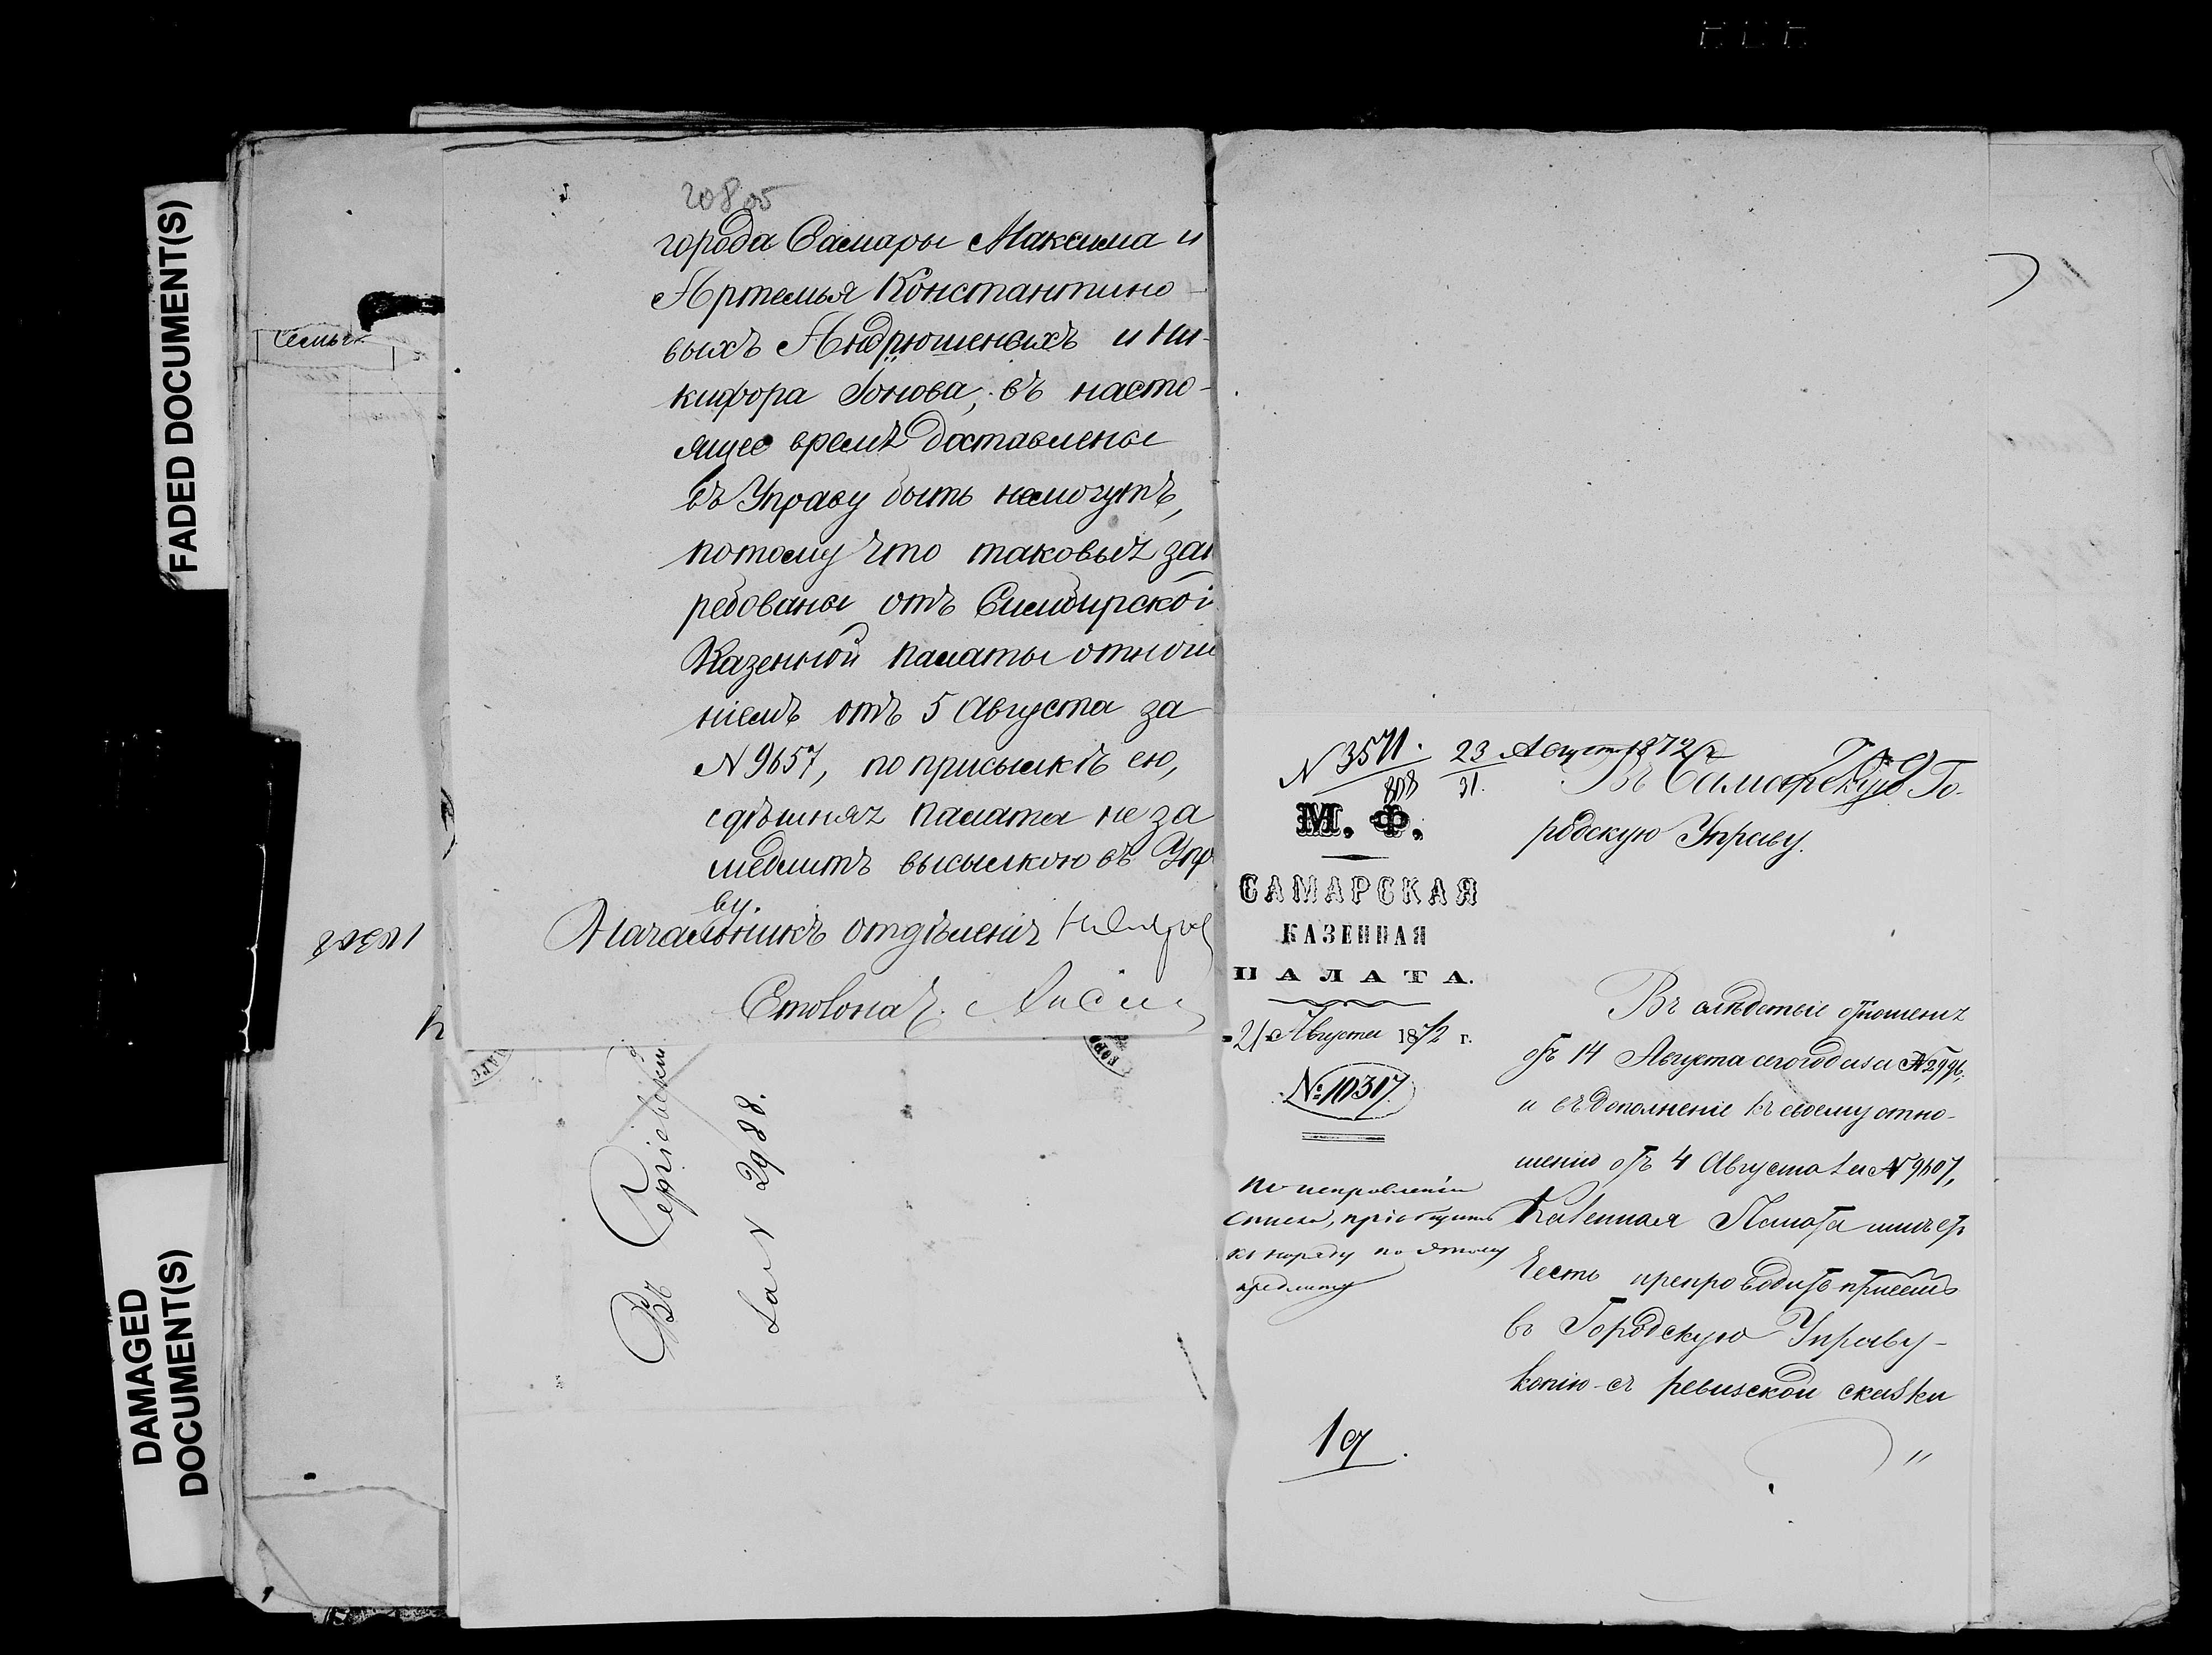 FADED DOCUMENT(S)
DAMAGED
DOCUMENT(S)
208 об
города Самары Максима и
Артемья Константино-
выхъ Андрюшеныхъ и Ни-
кифора Іонова, въ насто-
ящее время доставлены
въ Управу быть немогутъ,
потому что таковыя зат
ребованы отъ Симбирской
Казенной палаты отноше
ніемъ отъ 5 Августа за
N 9657, по присылкѣ ею,
сдѣшняя палата не за
медлитъ высылкою въ Упр
ву.
Начальникъ отдѣленія
Столонач.
Въ Сергіевскую
за N 2988.
N 3571. 23 Август. 1872 г
808 31.
М. Ф.
САМАРСКАЯ
КАЗЕННАЯ
ПАЛАТА.
21 Августа 1872 г.
№ 10317
По исправленіи
списка, пріобщить
къ наряду по этому
предмету
19.
209
Въ Самарскую Го-
родскую Управу.
Въ слѣдствіе отношенія
отъ 14 Августа сего года за N 2996,
и въ дополненіе къ своему отно-
шенію отъ 4 Августа за N 9607,
Казенная Палата имѣетъ
честь препроводить при семъ
въ Городскую Управу
копію съ ревизской сказки